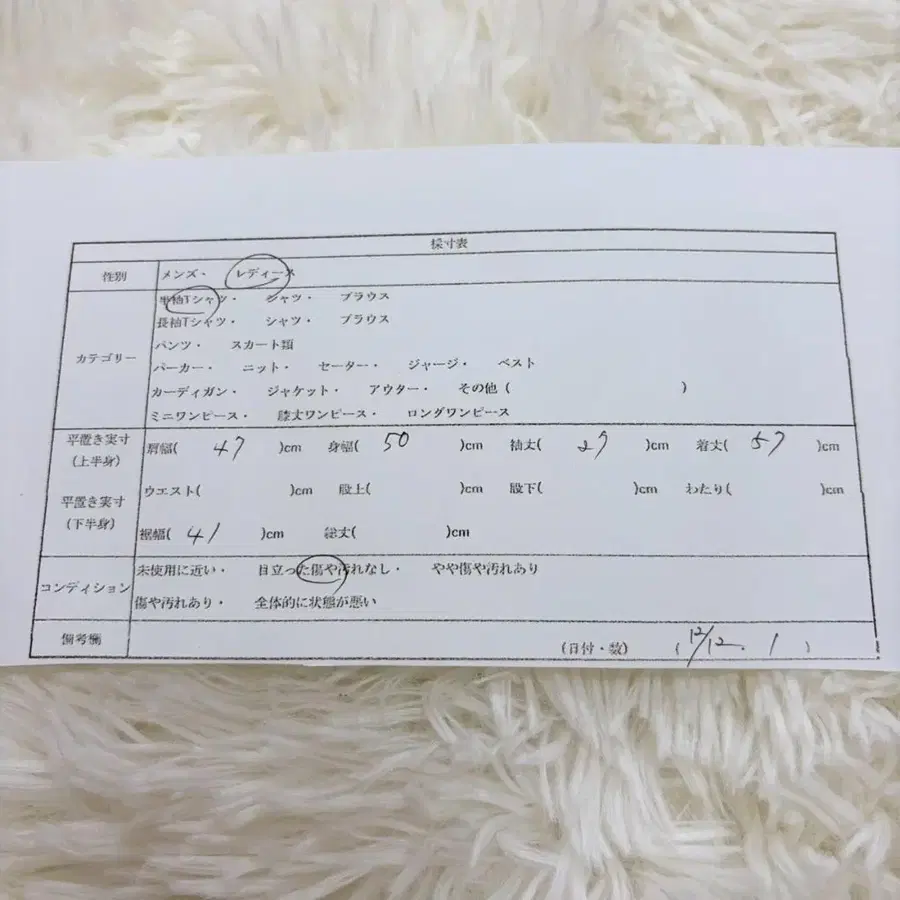 採寸表
性別 メンズ・ レディース
半袖Tシャツ・ シャツ・ ブラウス
長袖Tシャツ・ シャツ・ ブラウス
パンツ・ スカート類
カテゴリー
パーカー・ ニット・ セーター・ ジャージ・ ベスト
カーディガン・ ジャケット・ アウター・ その他( )
ミニワンピース・ 膝丈ワンピース・ ロングワンピース
平置き実寸 (上半身) 肩幅( 47 )cm 身幅( 50 )cm 袖丈( 27 )cm 着丈( 57 )cm
平置き実寸 (下半身) ウエスト( )cm 股上( )cm 股下( )cm わたり( )cm
裾幅( 41 )cm 総丈( )cm
コンディション 未使用に近い・ 目立った傷や汚れなし・ やや傷や汚れあり
傷や汚れあり・ 全体的に状態が悪い
備考欄 (日付・数) ( 12/12. 1 )